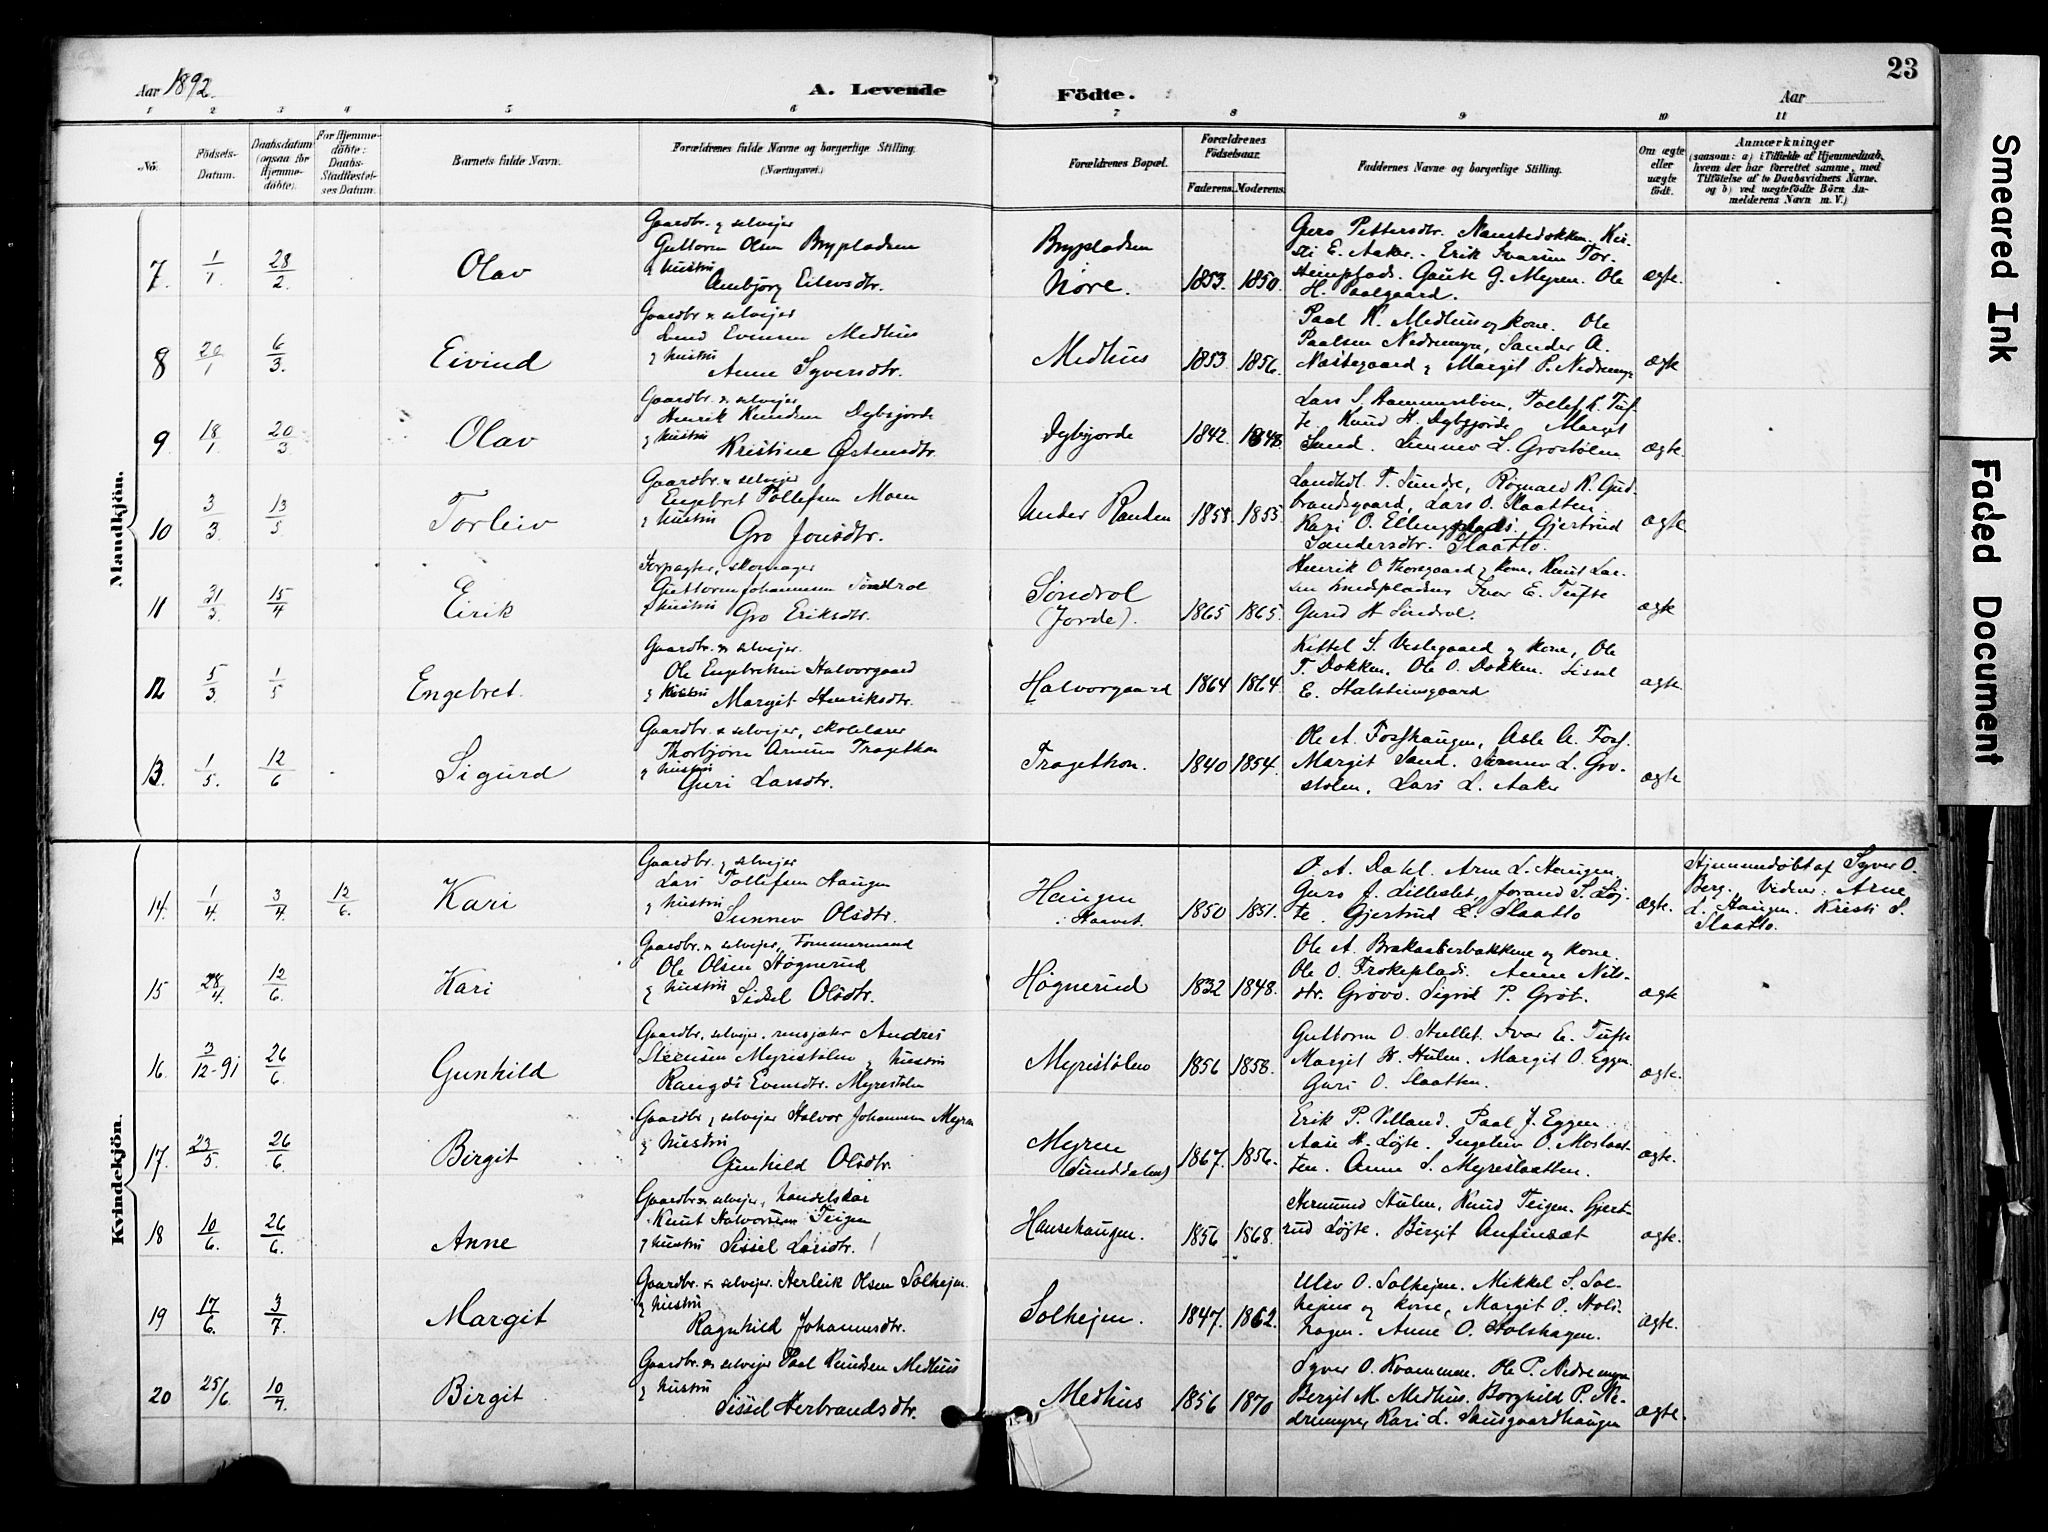 Aar 1892.
A. Levende
Födte.
Aar
23
1 2 3 4 5 6 7 8 9 10 11
No.
Födsets-
Datum.
Daabsdatum
(ogsaa for
Hjemme-
døbte).
For Hjemme-
døbte:
Daabs-
Stadfæstel-
ses Datum.
Barnets fulde Navn.
Forældrenes fulde Navne og borgerlige Stilling.
(Næringsvei.)
Forældrenes Bopæl.
Forældrenes
Födselsaar.
Faderens. Moderens.
Faddernes Navne og borgerlige Stilling.
Om ægte
eller
uægte
födt.
Anmærkninger
(saasom: a) i Tilfælde af Hjemmedaab,
hvem der har forrettet samme, med
Tilföielse af to Daabsvidners Navne,
og b) ved uægtefödte Börn An-
melderens Navn m. V.)
Mandkjön.
7. 1/1 28/2 Olav
Gaardbr. & selvejer
Guttorm Olsen Brypladsen
& hustru
Ambjörg Eilevsdtr.
Brypladsen
Nore.
1853. 1850.
Guro Pettersdtr. Kir-
sti E. Aaker. Erik Ivarsen Tor-
steinplads. Gaute G. Myren. Ole
H. Paalgaard.
ægte.
8 20/1 6/3. Eivind
Gaardbr & selvejer
Evensen Medhus
& hustru
Anne Syversdtr.
Medhus
1853 1856.
Paal K. Medhus og kone. Ole
Paalsen Nedremyr, Sander A.
Nørstegaard & Margit P. Nedremyr
ægte
9 18/1 20/3 Olav
Gaardbr. & selvejer
Henrik Knudsen Dybsjorde
& hustru
Kristine Østensdtr.
Dybsjorde
1842. 1848.
Lars S. Hammersbøn, Tollef K. Tuf-
te, Knud H. Dybsjorde Margit
Sand. Sunnev L. Grostølen
ægte.
10 3/3 13/5 Torleiv
Gaardbr. & selvejer
Engebret Tollefsen Moen
& hustru
Gro Jonsdtr.
Under Randen
1858. 1855.
T. Sundre, Rognald K. Gud-
brandsgaard, Lars O. Slaatten
Kari O. Ellingplads. Gjertrud
Sandersdtr. Slaatto.
ægte
11 21/3 15/4 Eirik
Forpagter, skomager
Guttorm Johannesen Sondrol
& hustru
Gro Eriksdtr.
Söndrol
(Jorde).
1865 1865.
Henrik O Thoregaard & kone, Knut Lar-
sen Ivar E. Tufte
Gurid H Sündrol.
ægte
12 5/3 1/5 Engebret.
Gaardbr. & selvejer.
Ole Engebretsen Halvorgaard
& hustru
Margit Henriksdtr.
Halvorgaard
1864 1864
Kittel S. Veslegaard & kone, Ole
T. Dokken, Ole O. Dokken. Sissel
E. Halsteinsgaard
ægte
13. 1/5. 12/6 Sigurd
Gaardbr & selvejer, skolelærer
Thorbjörn Arnesen Tragethon
& hustru
Guri Larsdtr.
Tragethon.
1840 1854.
Ole A. Fosshaugen, Asle A. Foss.
Margit Sand. Sunnev L. Gro-
stolen, Lars L. Aaker
ægte
Kvindekjön.
14. 1/4 3/4 12/6. Kari
Gaardbr. & selvejer
Lars Tollefsen Haugen
& hustru
Sunnev Olsdtr.
Haugen
i Haavet.
1850 1851.
O. A. Dahl. Arne L. Haugen,
Guro J. Lilleslet, Jorand S. Løj-
te. Gjertrud L. Slaatto
ægte.
Hjemmedøbt af Syver O.
Berg. Vidner: Arne
L. Haugen. Kristi S.
Slaatto.
15 28/4 12/6. Kari
Gaardbr. & selvejer, Tømmermand
Ole Olsen Høgnerud
& hustru
Sidsel Olsdtr.
Høgnerud
1832 1848.
Ole A. Brakaalierbakkene og kone.
Ole O. Frokeplads. Anne Nils-
dtr. Grøvo. Sigrid P. Grøt.
ægte
16. 3/12-91 26/6. Gunhild
Gaardbr. selvejer, rensjæter Andres
Steensen Myristølen & hustru
Rangdi Evensdtr. Myrestølen
Myristølen
1856 1858.
Guttorm O. Hullet. Ivar E. Tufte
Margit H. Hulen. Margit O. Eggen
Guri O. Slaatten.
ægte.
17. 23/5. 26/6. Birgit
Gaardbr & selvejer Halvor Johannesen Myren
& hustru
Gunhild Olsdtr.
Myren
(Sunddalen)
1867. 1856.
Erik P. Villand. Paal J. Eggen
Aase H. Løjte. Ingeleiv O. Moslaat-
ten. Anne S. Myreslaatten.
ægte.
18 10/6. 26/6. Anne
Gaardbr & selvejer, handelskar
Knut Halvorsen Teigen
& hustru Sissel Larsdtr.
Hansehaugen.
1856 1868.
Hermund Hulen, Knud Teigen. Gjert-
rud Løjte. Birgit Anfinsæt
ægte.
19 17/6. 3/7. Margit
Gaardbr. & selvejer. Herleik Olsen Solhejm.
& hustru
Ragnhild Johannesdtr.
Solhejm.
1847. 1862.
Ulev O. Solhejm. Mikkel S. Sol-
hejms & kone, Margit O. Hols-
hagen. Anne O. Holshagen.
ægte.
20 25/6 10/7 Birgit
Gaardbr & selvejer Paal Knudsen Medhus
& hustru
Sissel Herbrandsdtr.
Medhus
1856 1870
Syver O. Kvammen. Ole P. Nedremyr
Bergit M. Medhus. Borghild P. Ne-
dremyr, Kari L. Saugaardhaugen
ægte.
Smeared Ink
Faded Document